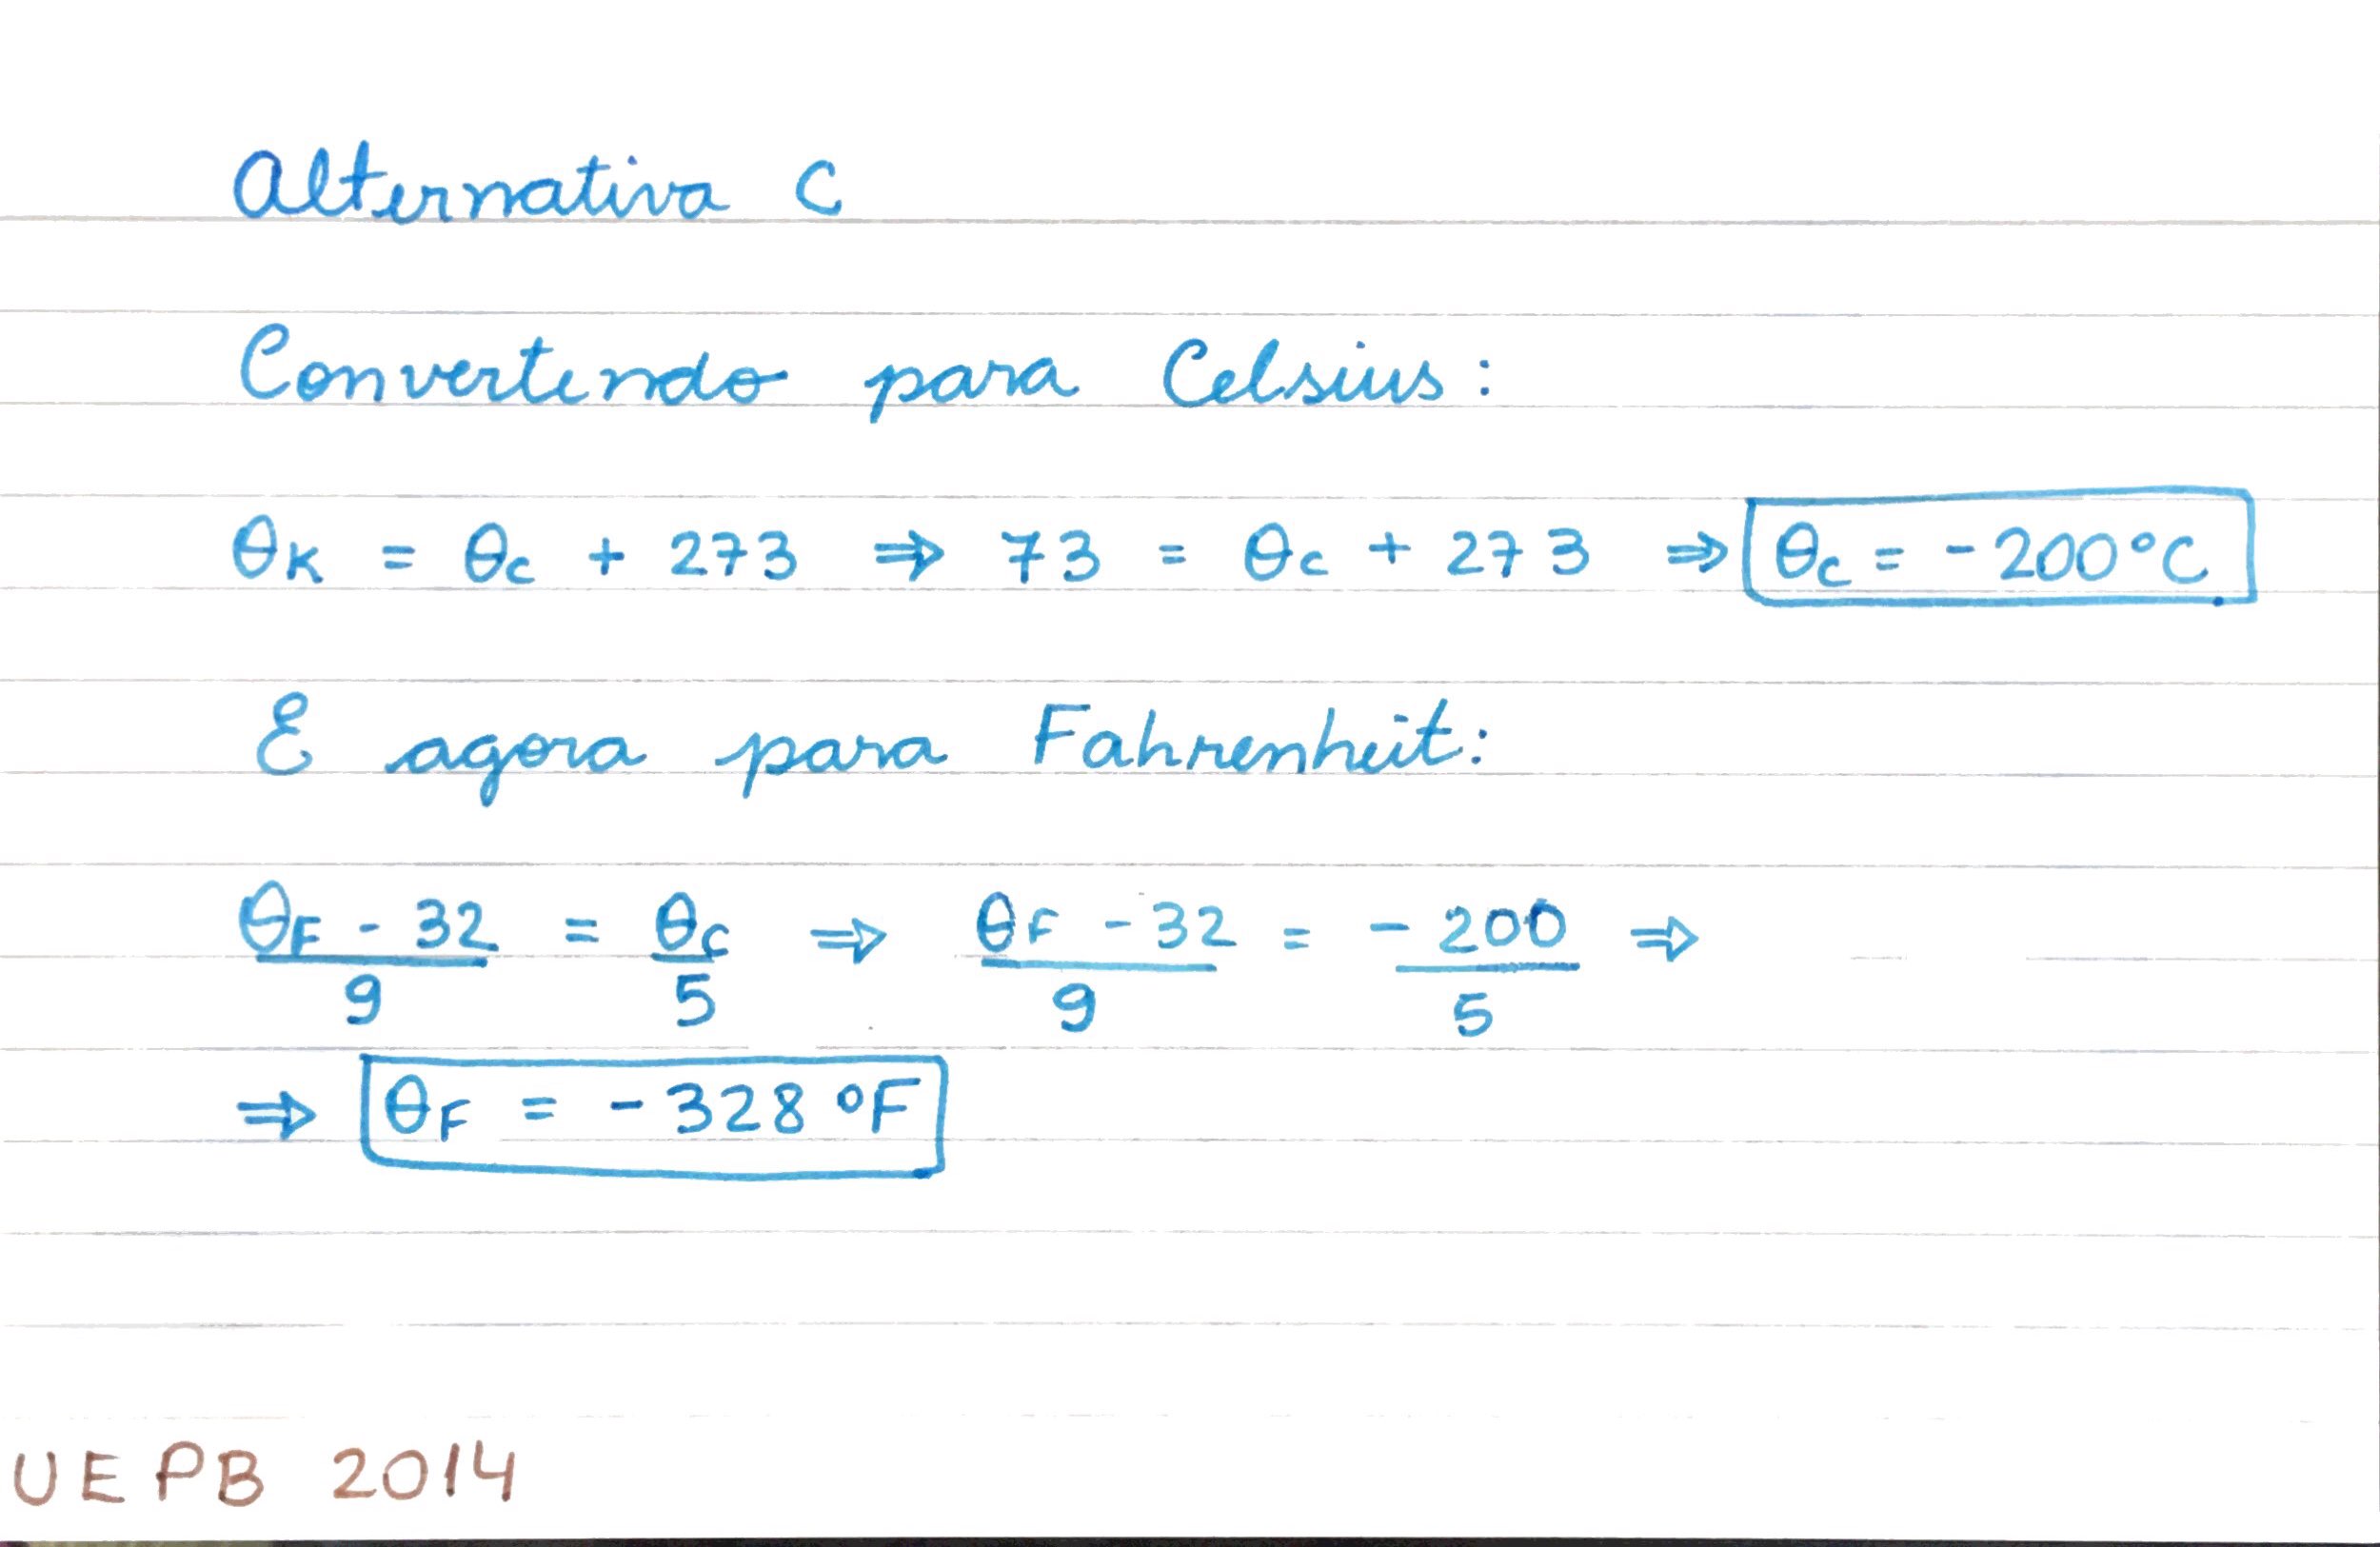 Alternativa C
Convertendo para Celsius:
θK = θC + 273 ⇒ 73 = θC + 273 ⇒ θC = -200°C
E agora para Fahrenheit:
θF - 32 / 9 = θC / 5 ⇒ θF - 32 / 9 = - 200 / 5 ⇒
⇒ θF = - 328 °F
UEPB 2014